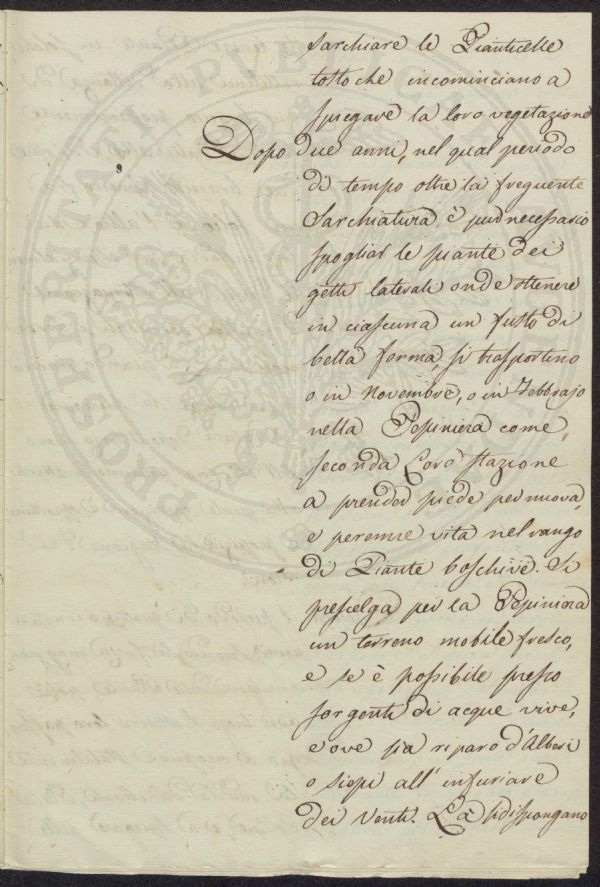 sarchiare le Pianticelle
tosto che incominciano a
spiegare la loro vegetazione
Dopo due anni, nel qual periodo
di tempo oltre la frequente
Sarchiatura è pur necessario
spogliar le piante dei
getti laterali onde ottenere
in ciascuna un fusto di
bella forma, si trasportino
o in Novembre, o in Febbrajo
nella Pepiniera come
seconda loro stazione
a prender piede per nuova,
e perenne vita nel rango
di Piante boschive. Si
prescelga per la Pepiniera
un terreno mobile fresco,
e se è possibile presso
sorgenti di acque vive,
e ove sia riparo d'Alberi
o siepi all' infuriare
dei Venti. Là si dispongano